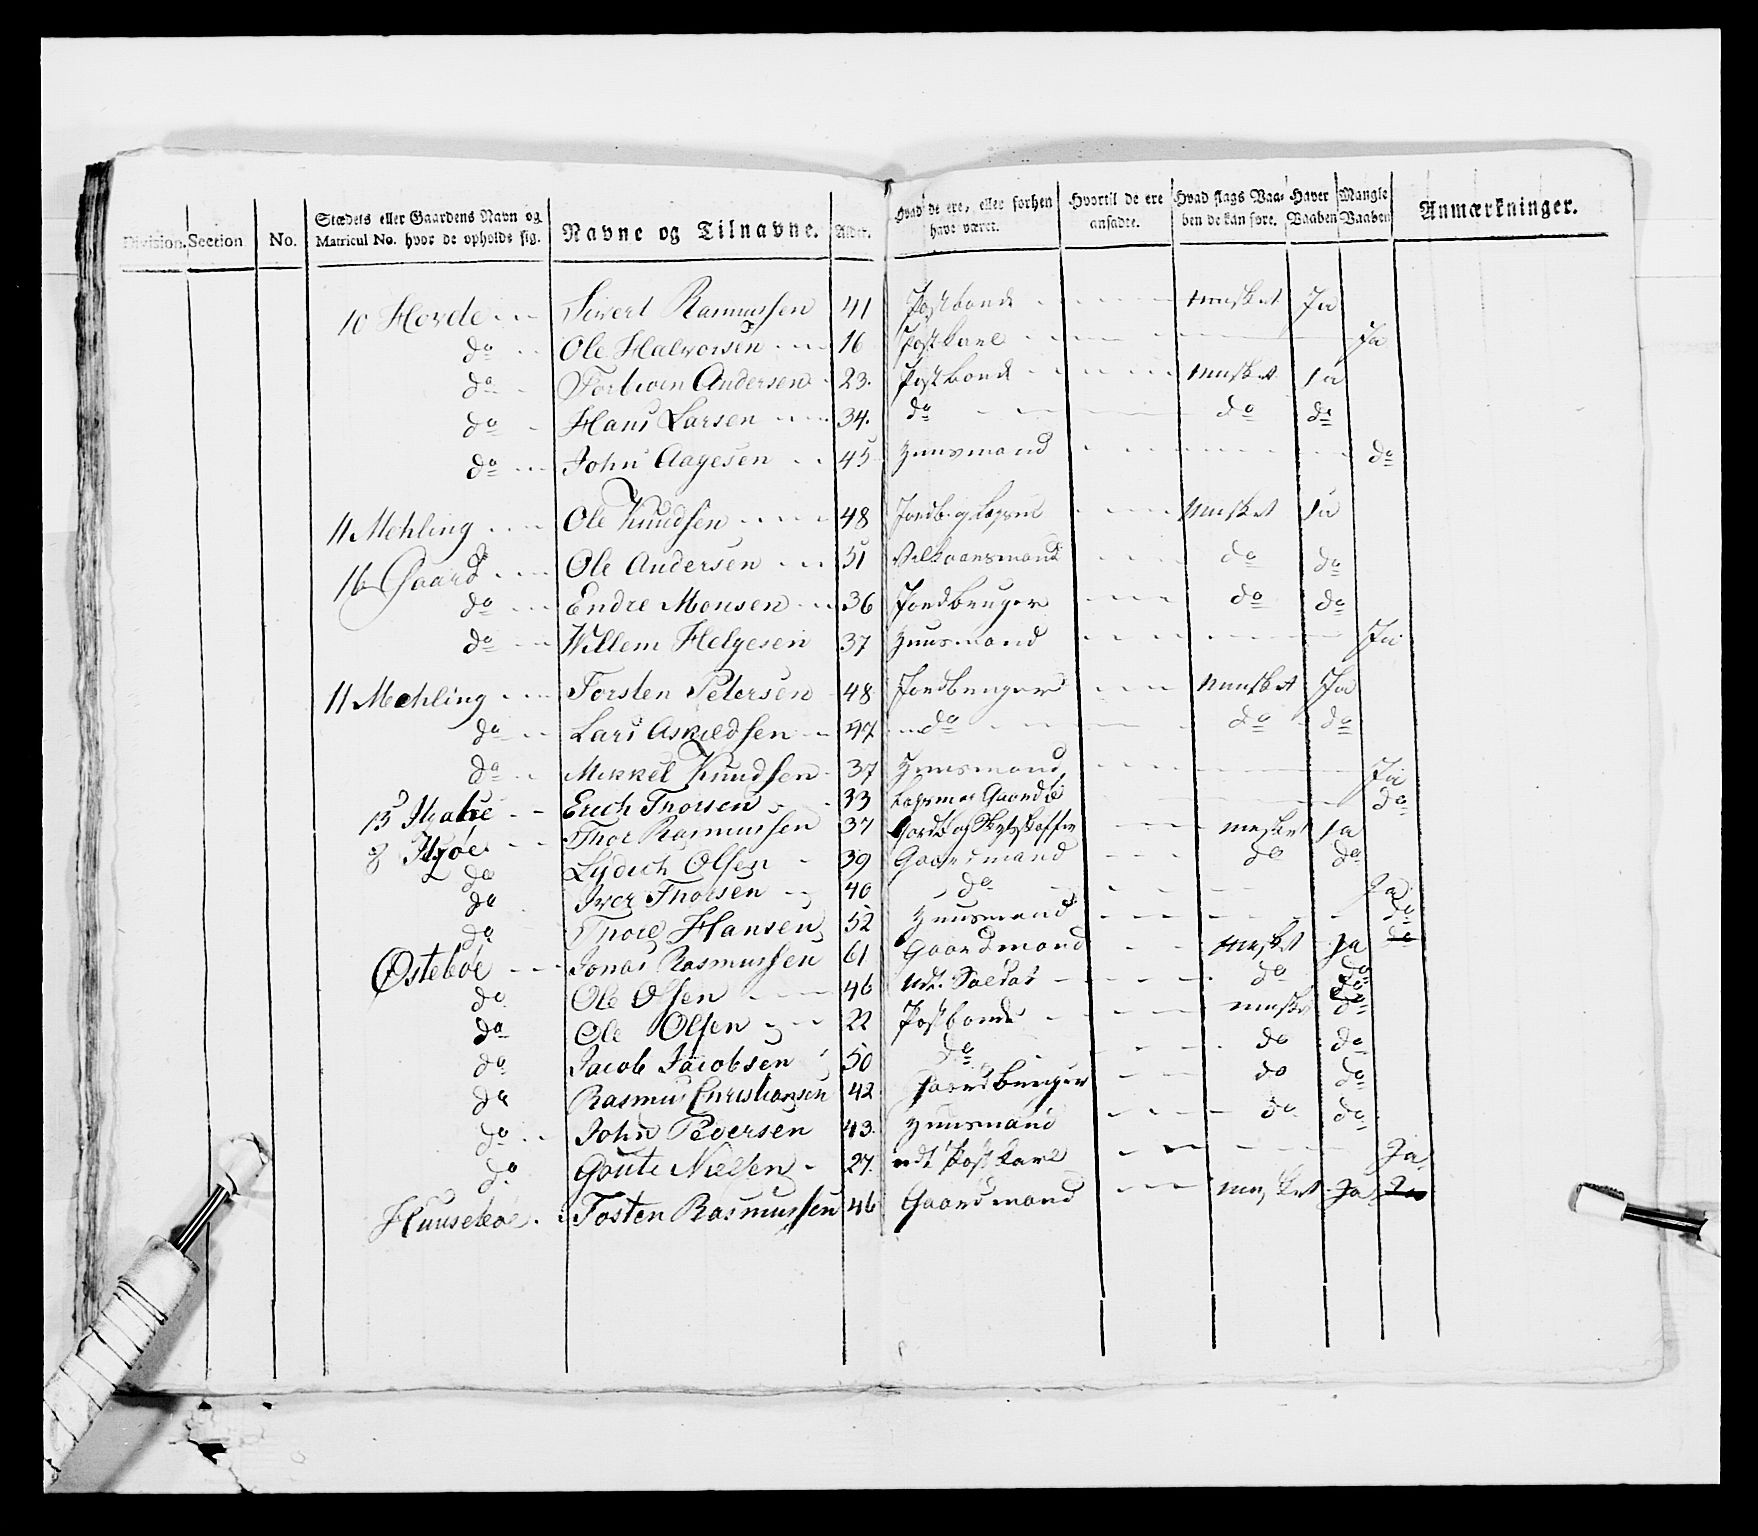 Division. Section No. Stædets eller Gaardens Navn og Matricul No. hvor de opholde sig. Navne og Tilnavne. Alder. Hvad de ere, eller forhen have været. Hvortil de ere ansadte. Hvad slags Vaaben de kan føre. Haver Vaaben Mangle Vaaben Anmærkninger.
10 Hovde Sivert Rasmussen 41 Postbonde Musket Ja
do Ole Halvorsen 16 Postkarl Ja
do Andersen 23. Postbonde Musket Ja
do Hans Larsen 34. do do do
do John Aagesen 45 Huusmand do
11 Mehling Ole Knudsen 48 Musket Ja
16 Gaard Ole Andersen 51 do do
do Endre Monsen 36 Jordbruger do do
do Willem Helgesen 37 Huusmand Ja
11 Mehling Torsten Petersen 48 Jordbruger Musket Ja
do Lars Askildsen 47 do do do
do Mikkel Knudsen 37 Huusmand Ja
13 Erich Thorsen 33 do
8 Thor Rasmussen 37 Musket Ja
do Lydich Olsen 39 Gaardmand do do
do Iver Thorsen 40 do Ja
do Thore Hansen 52 Huusmand do
Østebøe Jonas Rasmussen 61 Gaardmand Musket Ja do
do Ole Olsen 46 Udt. Soldat do do
do Ole Olsen 22 Postbonde Musket do
do Jacob Jacobsen 50 do do do
do Rasmus Christiansen 42 Jordbruger do do
do John Pedersen 43. Huusmand do do
do Goute Nielsen 27. udt Postkarl Ja
Huusebøe Tosten Rasmussen 46 Gaardmand Musket Ja Ja